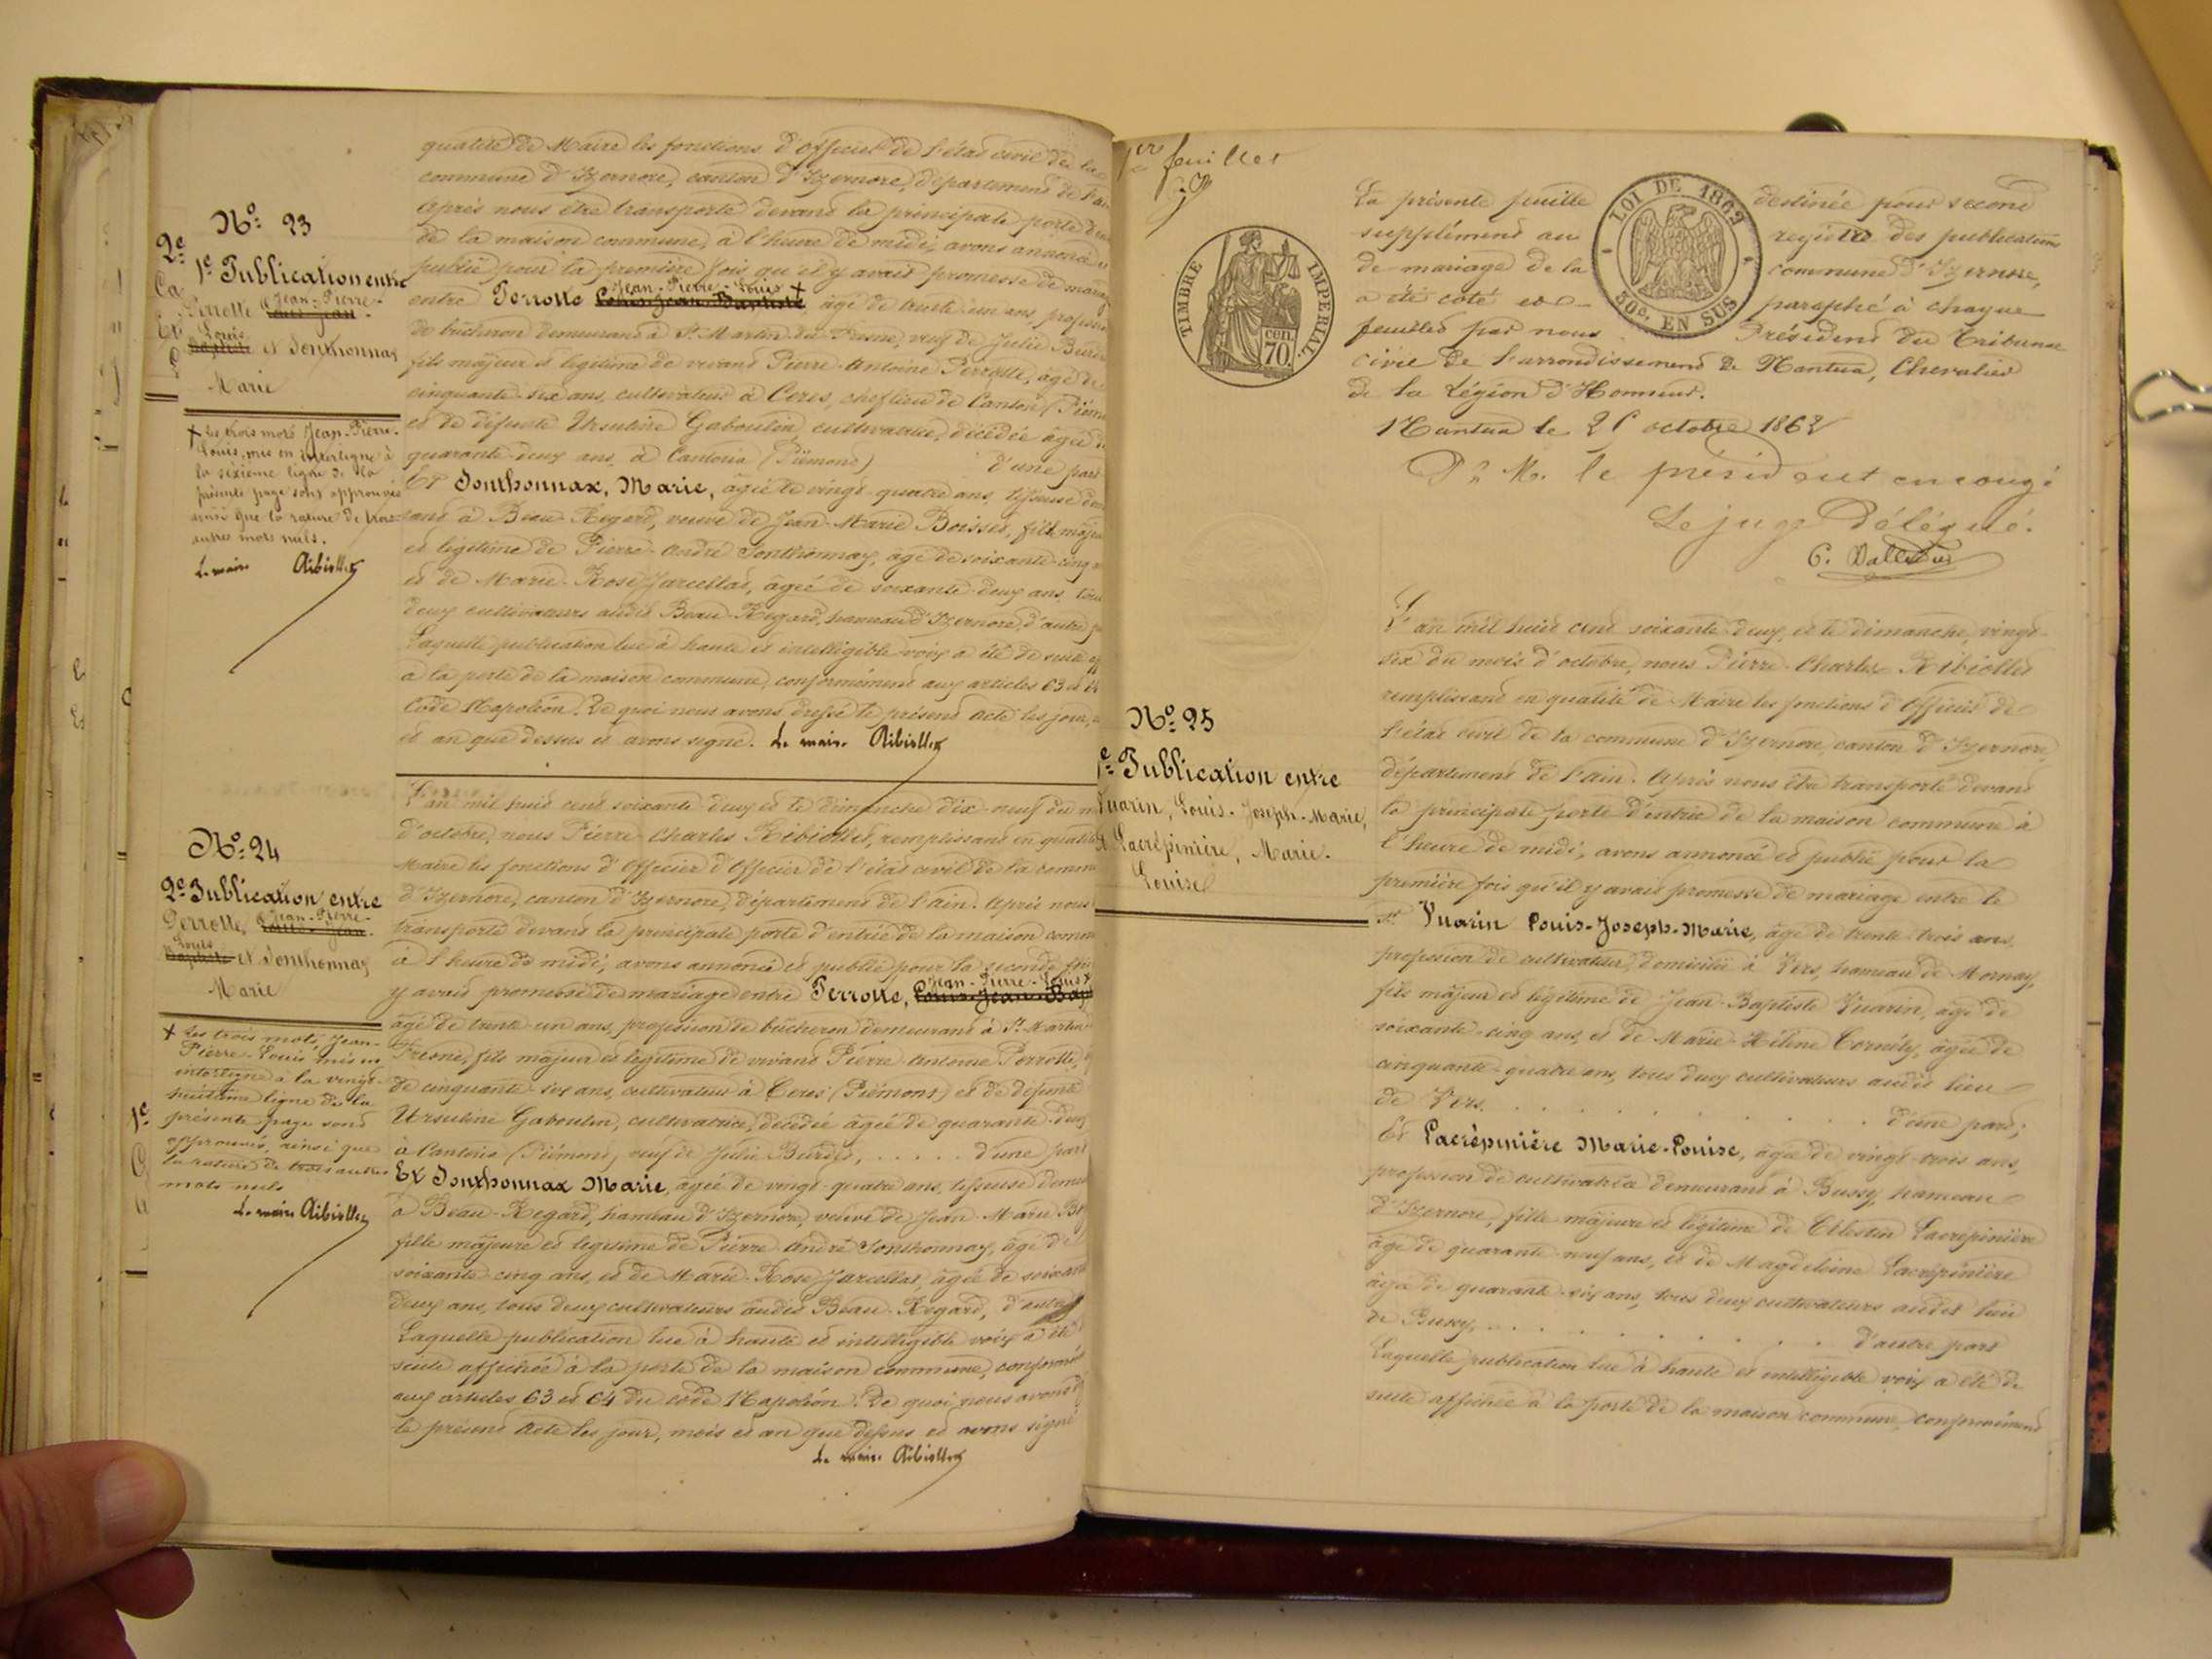 qualité de Maire les fonctions d'officier de l'état civil de la
commune d'Izernore, canton d'Izernore, département de l'ain
Après nous être transporté devant la principale porte
de la maison commune, à l'heure de midi, avons annoncé
publié pour la première fois qu'il y avait promesse de mariage
entre Perrotte Louis-Jean-Baptiste Jean-Pierre-Louis + âgé de trente un ans, profession
de bûcheron demeurant à St. Martin du Fresne, veuf de Julie Burdet
fils majeur et légitime de vivant Pierre Antoine Perrotte, âgé de
cinquante-six ans, cultivateur à Ceres, chef lieu de Canton (Piémont
et de défunte Ursuline Gaboulin, cultivatrice, décédée âgée de
quarante-deux ans, à Cantoria (Piémont) d'une part
Et Jonthonnax, Marie, âgée de vingt-quatre ans, tisseuse
à Beau-Regard, veuve de Jean-Marie Boisset, fille majeure
et légitime de Pierre-André Jonthonnax, âgé de soixante-cinq
et de Marie-Rose Jarcellat, âgée de soixante-deux ans, tous
deux cultivateurs audit Beau-Regard, hameau d'Izernore, d'autre
Laquelle publication lue à haute et intelligible voix a été de suite
à la porte de la maison commune, conformément aux articles 63 et 64
Code Napoléon. De quoi nous avons dressé le présent acte les jour,
et an que dessus et avons signé. Le maire Ribiollet
No. 23
2e
1e Publication entre
Perrotte Jean-Pierre-
Louis-Jean-
Louis
Baptiste et Jonthonnax
Marie
+ Les trois mots Jean-Pierre-
Louis, mis en interligne à
la sixième ligne de la
présente page sont approuvés
ainsi que la rature de trois
autres mots nuls.
Le maire Ribiollet
L'an mil huit cent soixante deux et le dimanche dix-neuf du
d'octobre, nous Pierre-Charles Ribiollet, remplissant en qualité
Maire les fonctions d'Officier d'Officier de l'état civil de la
d'Izernore, canton d'Izernore, département de l'ain. Après nous
transporté devant la principale porte d'entrée de la maison
à l'heure de midi, avons annoncé et publié pour la seconde fois
y avait promesse de mariage entre Perrotte, Louis-Jean-Bap Jean-Pierre-Louis +
âgé de trente-un ans, profession de bûcheron demeurant à St. Martin
Fresne, fils majeur et légitime de vivant Pierre Antoine Perrotte,
de cinquante-six ans, cultivateur à Ceres (Piémont) et de défunte
Ursuline Gaboulin, cultivatrice, décédée âgée de quarante-deux
à Cantoria (Piémont) veuf de Julie Burdet, ..... d'une part
Et Jonthonnax Marie, âgée de vingt-quatre ans, tisseuse
à Beau-Regard, hameau d'Izernore, veuve de Jean-Marie
fille majeure et légitime de Pierre André Jonthonnax, âgé de
soixante-cinq ans, et de Marie-Rose Jarcellat, âgée de soixante
deux ans, tous deux cultivateurs audit Beau-Regard, d'autre
Laquelle publication lue à haute et intelligible voix a été
suite affichée à la porte de la maison commune,
aux articles 63 et 64 du code Napoléon. De quoi nous avons
le présent acte les jour, mois et an que dessus et avons signé
Le maire Ribiollet
No. 24
2e Publication entre
Perrotte, Jean-Pierre-
Louis-Jean-
Louis
Baptiste et Jonthonnax
Marie
+ Les trois mots, Jean-
Pierre-Louis mis en
interligne à la vingt-
huitième ligne de la
présente page sont
approuvés, ainsi que
la rature de trois autres
mots nuls
Le maire Ribiollet
1er feuillet
TIMBRE IMPERIAL.
cen.
70.
LOI DE 1862
50c. EN SUS
La présente feuille destinée pour second
supplément au registre des publications
de mariage de la commune d'Izernore,
a été coté et paraphé à chaque
feuillet par nous Président du Tribunal
civil de l'arrondissement de Nantua, Chevalier
de la Légion d'Honneur.
Nantua le 25 octobre 1862
Pr M. le président en congé
Le juge Délégué.
L'an mil huit cent soixante-deux et le dimanche, vingt-
six du mois d'octobre, nous Pierre-Charles Ribiollet
remplissant en qualité de Maire les fonctions d'Officier de
l'état civil de la commune d'Izernore, canton d'Izernore,
département de l'ain. Après nous être transporté devant
la principale porte d'entrée de la maison commune à
l'heure de midi, avons annoncé et publié pour la
première fois qu'il y avait promesse de mariage entre le
Sr. Vuarin Louis-Joseph-Marie, âgé de trente-trois ans,
profession de cultivateur, domicilié à Vers, hameau de Mornay,
fils majeur et légitime de Jean-Baptiste Vuarin, âgé de
soixante-cinq ans, et de Marie-Hélène Cornély, âgée de
cinquante-quatre ans, tous deux cultivateurs audit lieu
de Vers. . . . . . . . . . d'une part;
Et Lacrépinière Marie-Louise, âgée de vingt-trois ans,
profession de cultivatrice demeurant à Bussy, hameau
d'Izernore, fille majeure et légitime de Célestin Lacrépinière
âgé de quarante-neuf ans, et de Magdeleine Lacrépinière
âgée de quarante-six ans, tous deux cultivateurs audit lieu
de Bussy, . . . . . . . . . d'autre part
Laquelle publication lue à haute et intelligible voix a été de
suite affichée à la porte de la maison commune, conformément
No. 25
1e Publication entre
Vuarin, Louis-Joseph-Marie,
et Lacrépinière, Marie-
Louise